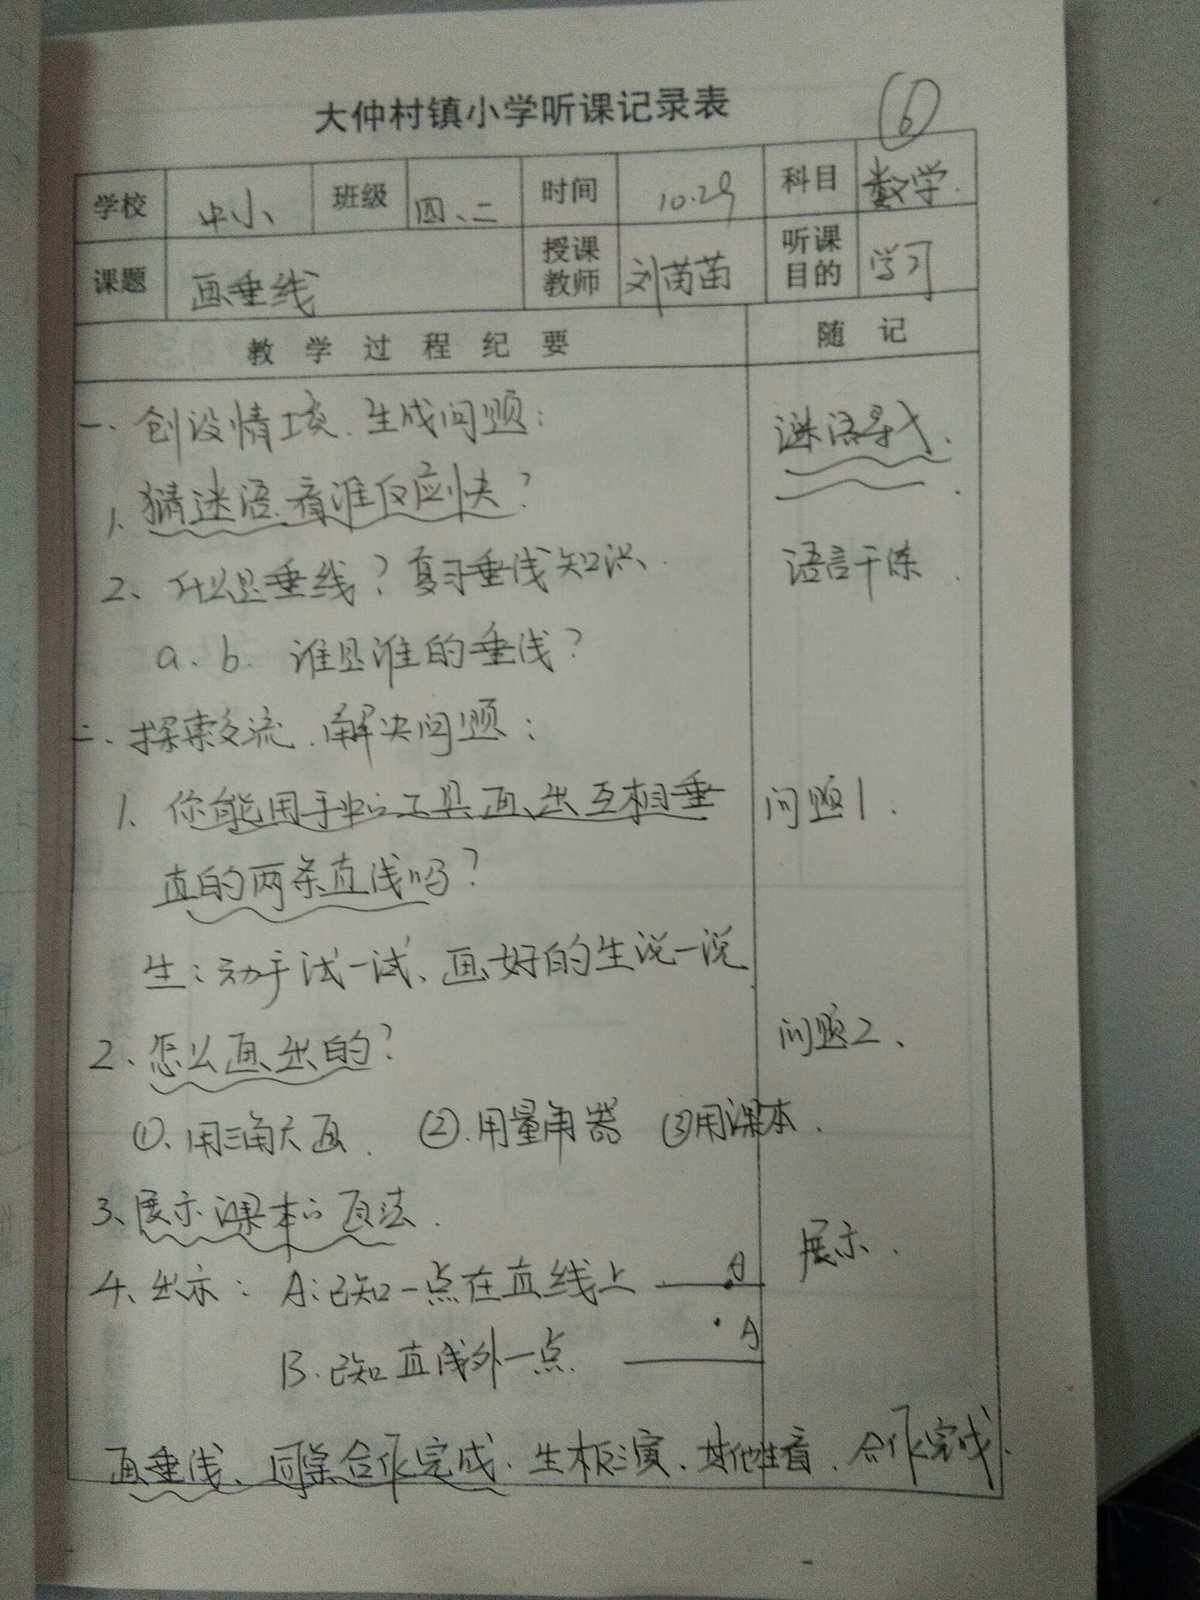 大仲村镇小学听课记录表
6
学校 中小 班级 四、二 时间 10.29 科目 数学.
课题 画垂线 授课教师 刘茵苗 听课目的 学习
教学过程纪要 随记
一、创设情境、生成问题： 谜语导入.
1、猜迷语.看谁反应快？
2、什么是垂线？复习垂线知识. 语言干练.
a、b. 谁是谁的垂线？
二、探索交流、解决问题：
1、你能用手中的工具画出互相垂 问题1.
直的两条直线吗？
生：动手试一试、画好的生说一说
2、怎么画出的？ 问题2、
①、用三角尺画. ②.用量角器 ③用课本.
3、展示课本的画法. 展示.
4、出示： A：已知一点在直线上 A
B.已知直线外一点. A
画垂线、同桌合作完成.生板演、其他生看.合作完成.